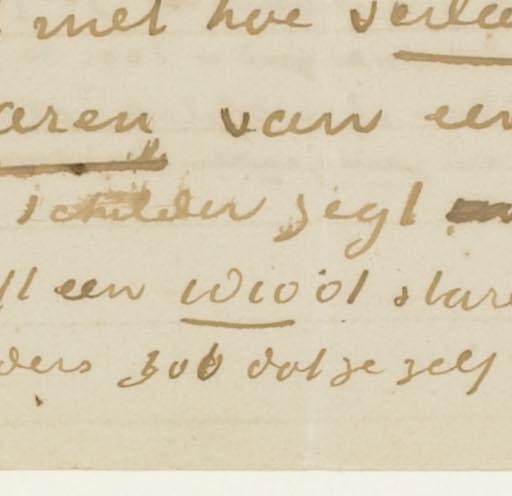 met hoe
aren van een
schilder zegt
een idioot
ders zoo dat ze zelf